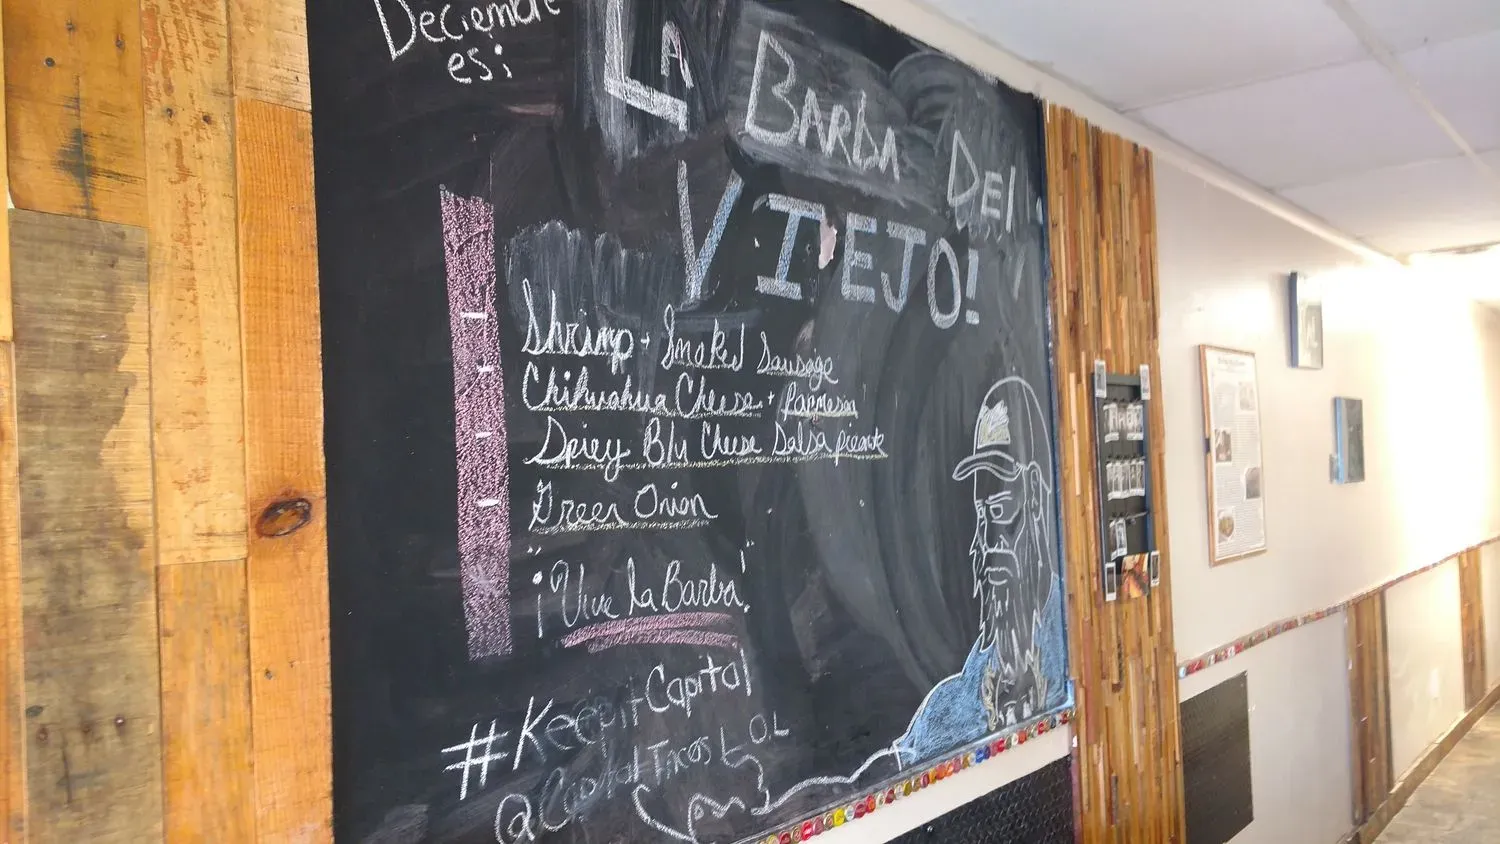 Deciembre
es:
LA BARBA DEL
VIEJO!
Shrimp + Smoked Sausage
Chihuahua Cheese + Parmesan
Spicy Blu Cheese Salsa picante
Green Onion
"¡Viva la Barba!"
#KeepitCapital
@CapitalTacosLOL